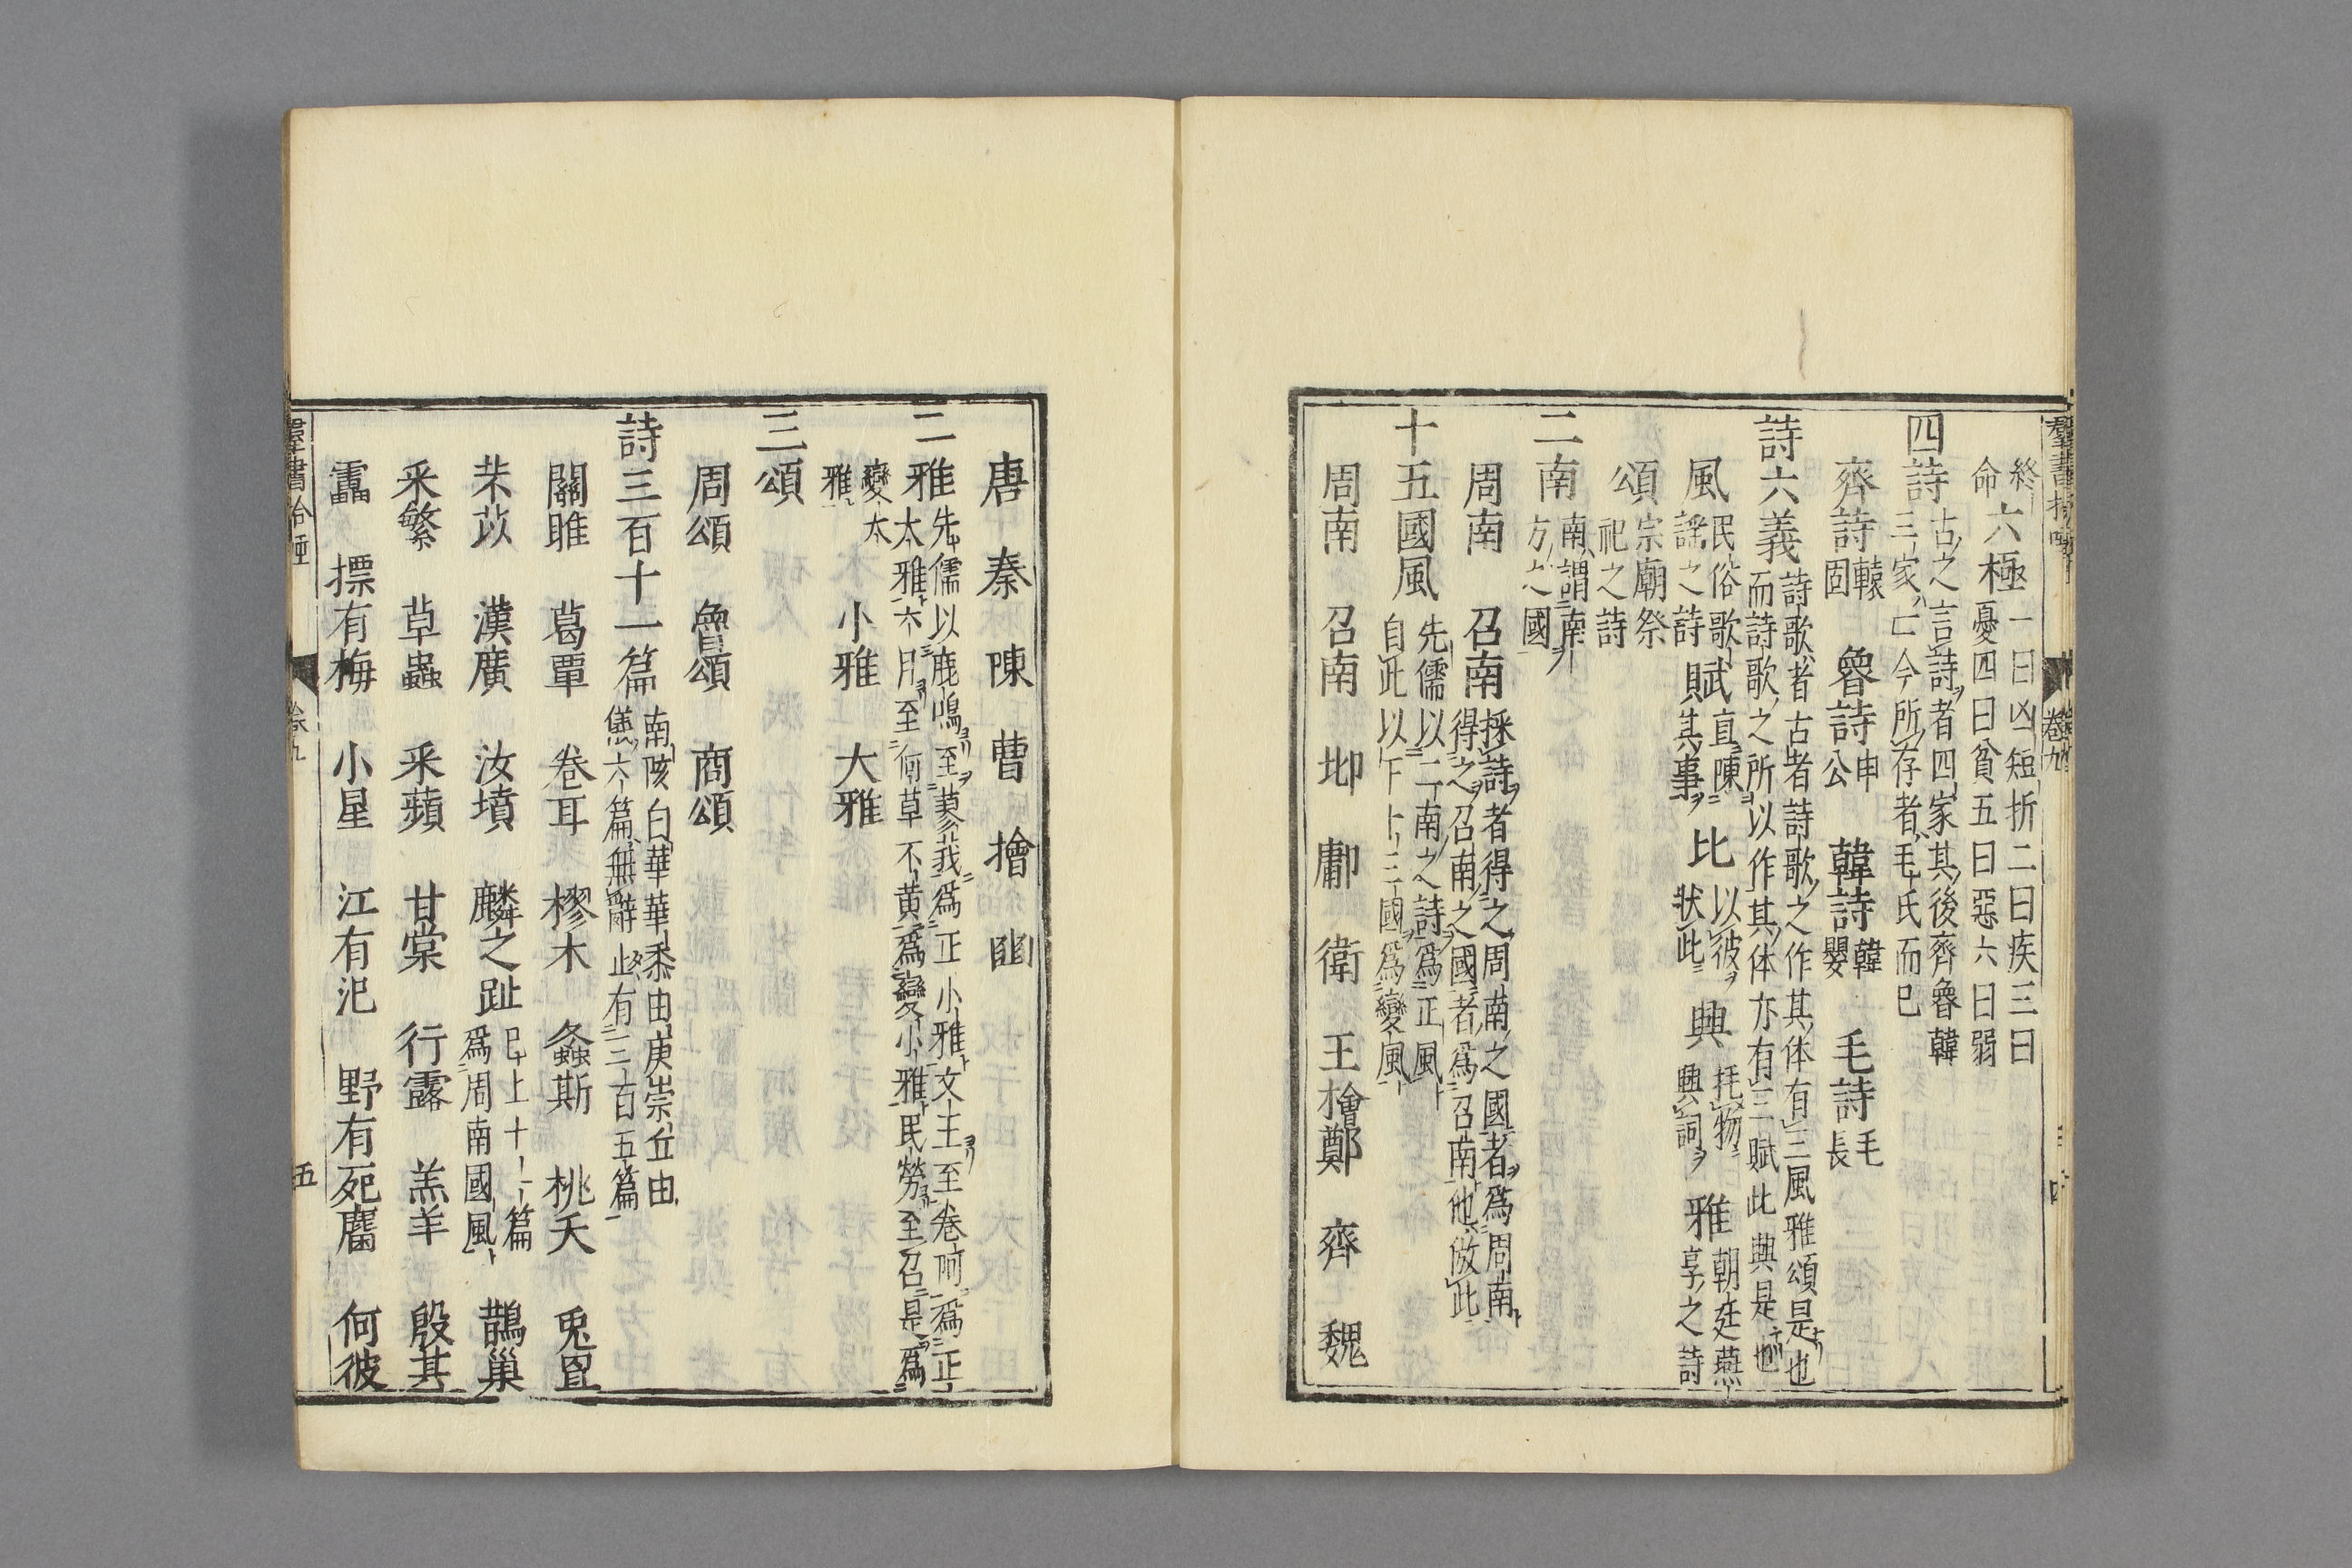 羣書拾唾
卷九
終
命
六極
一曰凶短折二曰疾三曰
憂四曰貧五曰惡六曰弱
四詩
古之言詩者四家其後齊魯韓
三家亡今所存者毛氏而已
齊詩
轅
固
魯詩
申
公
韓詩
韓
嬰
毛詩
毛
長
詩六義
詩歌者古者詩歌之作其体有三風雅頌是也
而詩歌之所以作其体亦有三賦比興是也
風
民俗歌
謠之詩
賦
直陳
其事
比
以彼
狀此
興
托物
興詞
雅
朝廷燕
享之詩
頌
宗廟祭
祀之詩
二南
南謂南
方之國
周南 召南
採詩者得之周南之國者為周南
得之召南之國者為召南他倣此
十五國風
先儒以二南之詩為正風
自此以下十三國為變風
周南 召南 邶 鄘 衛 王 鄭 齊 魏
唐 秦 陳 曹 檜 豳
二雅
先儒以鹿鳴至蓼莪為正小雅文王至卷阿為正
太雅六月至何草不黃為變小雅民勞至召旻為
變太
雅
小雅 大雅
三頌
周頌 魯頌 商頌
詩三百十一篇
南陔白華華黍由庚崇丘由
儀六篇無辭止有三百五篇
關雎 葛覃 卷耳 樛木 螽斯 桃夭 兎罝
芣苡 漢廣 汝墳 麟之趾
已上十一篇
為周南國風
鵲巢
采繁 草蟲 采蘋 甘棠 行露 羔羊 殷其
靁 摽有梅 小星 江有汜 野有死麕 何彼
羣書拾唾
卷九
五